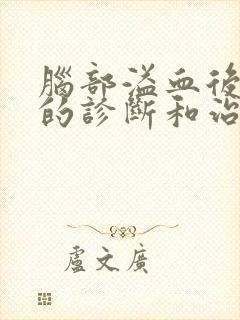 腦部溢血後
的診斷和治
盧文廣